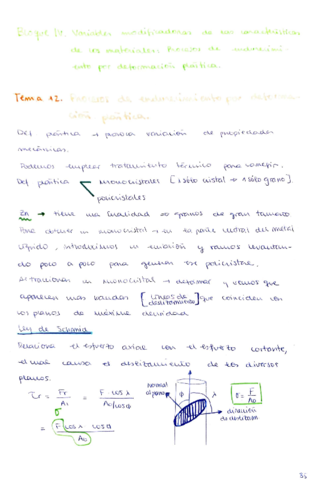 Bloque IV. Variables modificadoras de las características
de los materiales. Procesos de endurecimi-
ento por deformación plástica.
Tema 12. Procesos de endurecimiento por deforma-
ción plástica.
Def plástica → provoca variación de propiedades
mecánicas.
Podemos emplear tratamiento térmico para
Def plástica monocristales [1 sólo cristal → 1 sólo grano]
policristales
→ tiene una linealidad → granos de gran tamaño
obtener un monocristal → en la parte central del metal
líquido, introducimos un y vamos levantan-
do poco a poco para generar ese policristal.
un monocristal → deformar y vemos que
aparecen unas bandas [líneas de deslizamiento] que coinciden con
los planos de máxima densidad
Ley de Schmid
Relaciona el esfuerzo axial con el esfuerzo cortante,
el cual causa el deslizamiento de los diversos
planos.
τr = Fr / A1 = F cos λ / A0/cos φ
normal al plano φ λ σ = F / A0
dirección de deslizado
= F cos λ cos φ / A0
36